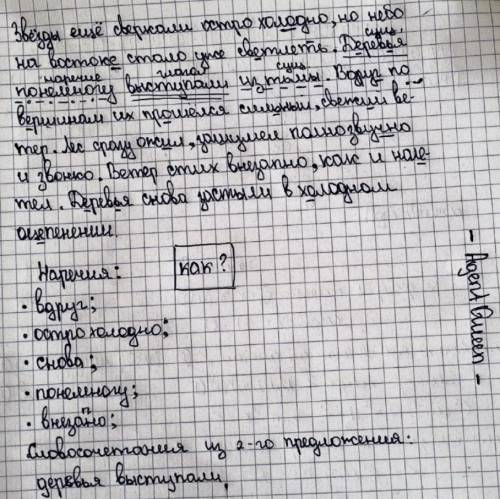 Звёзды ещё сверкали остро холодно, но небо
на востоке стало уже светлеть. Деревья
сущ.
наречие глагол сущ.
понемногу выступали из тьмы. Вдруг по
вершинам их прошёлся сильный, свежий ве-
тер. Лес сразу ожил, зашумел полнозвучно
и звонко. Ветер стих внезапно, как и нале-
тел. Деревья снова застыли в холодном
оцепенении.
Наречия:
как?
• вдруг;
• остро холодно;
• снова;
• понемногу;
п
• внезано;
Словосочетания из 2-го предложения:
деревья выступали,
- Agent Queen -